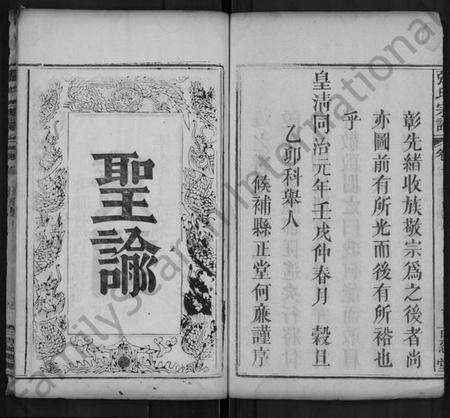 彰先緒收族敬宗爲之後者尚
亦圖前有所光而後有所裕也
乎
皇清同治元年壬戌仲春月 穀旦
乙卯科舉人
候補縣正堂何廉謹序
聖諭